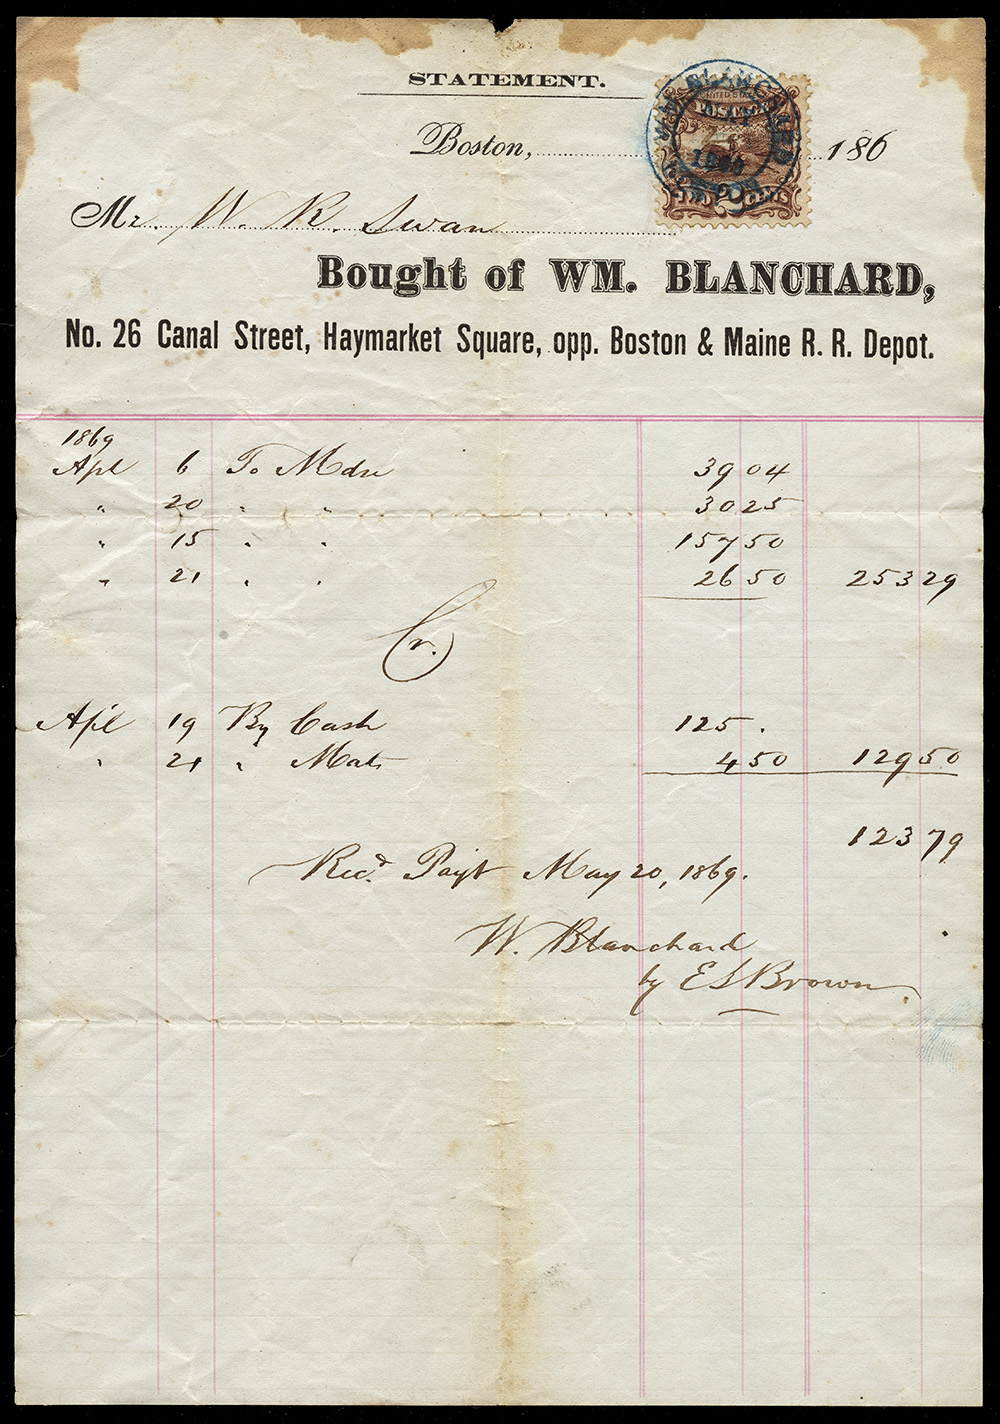 STATEMENT.
Boston, 186
UNITED STATES
POSTAGE
WM. BLANCHARD
MAY
BOSTON
TWO 2 CENTS
Mr. W. R. Swan
Bought of WM. BLANCHARD,
No. 26 Canal Street, Haymarket Square, opp. Boston & Maine R. R. Depot.
1869
Apl 6 To Mdse 39 04
" 20 " " 30 25
" 15 " " 157 50
" 21 " " 26 50 253 29
Cr.
Apl 19 By Cash 125 .
" 21 " Mats 4 50 129 50
123 79
Recd. Payt May 20, 1869.
W. Blanchard
by E S Brown